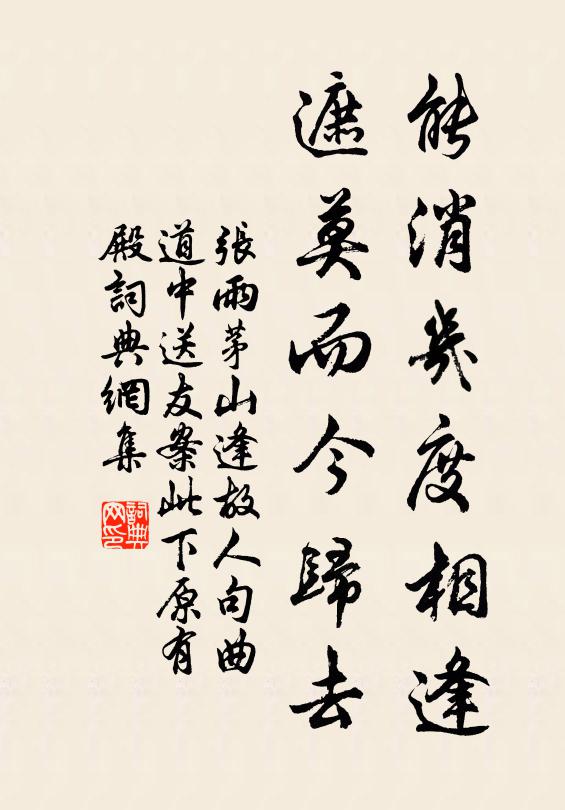 能消幾度相逢
遮莫而今歸去
張雨茅山逢故人句曲
道中送友案此下原有
殿詞典網集
詞典網印